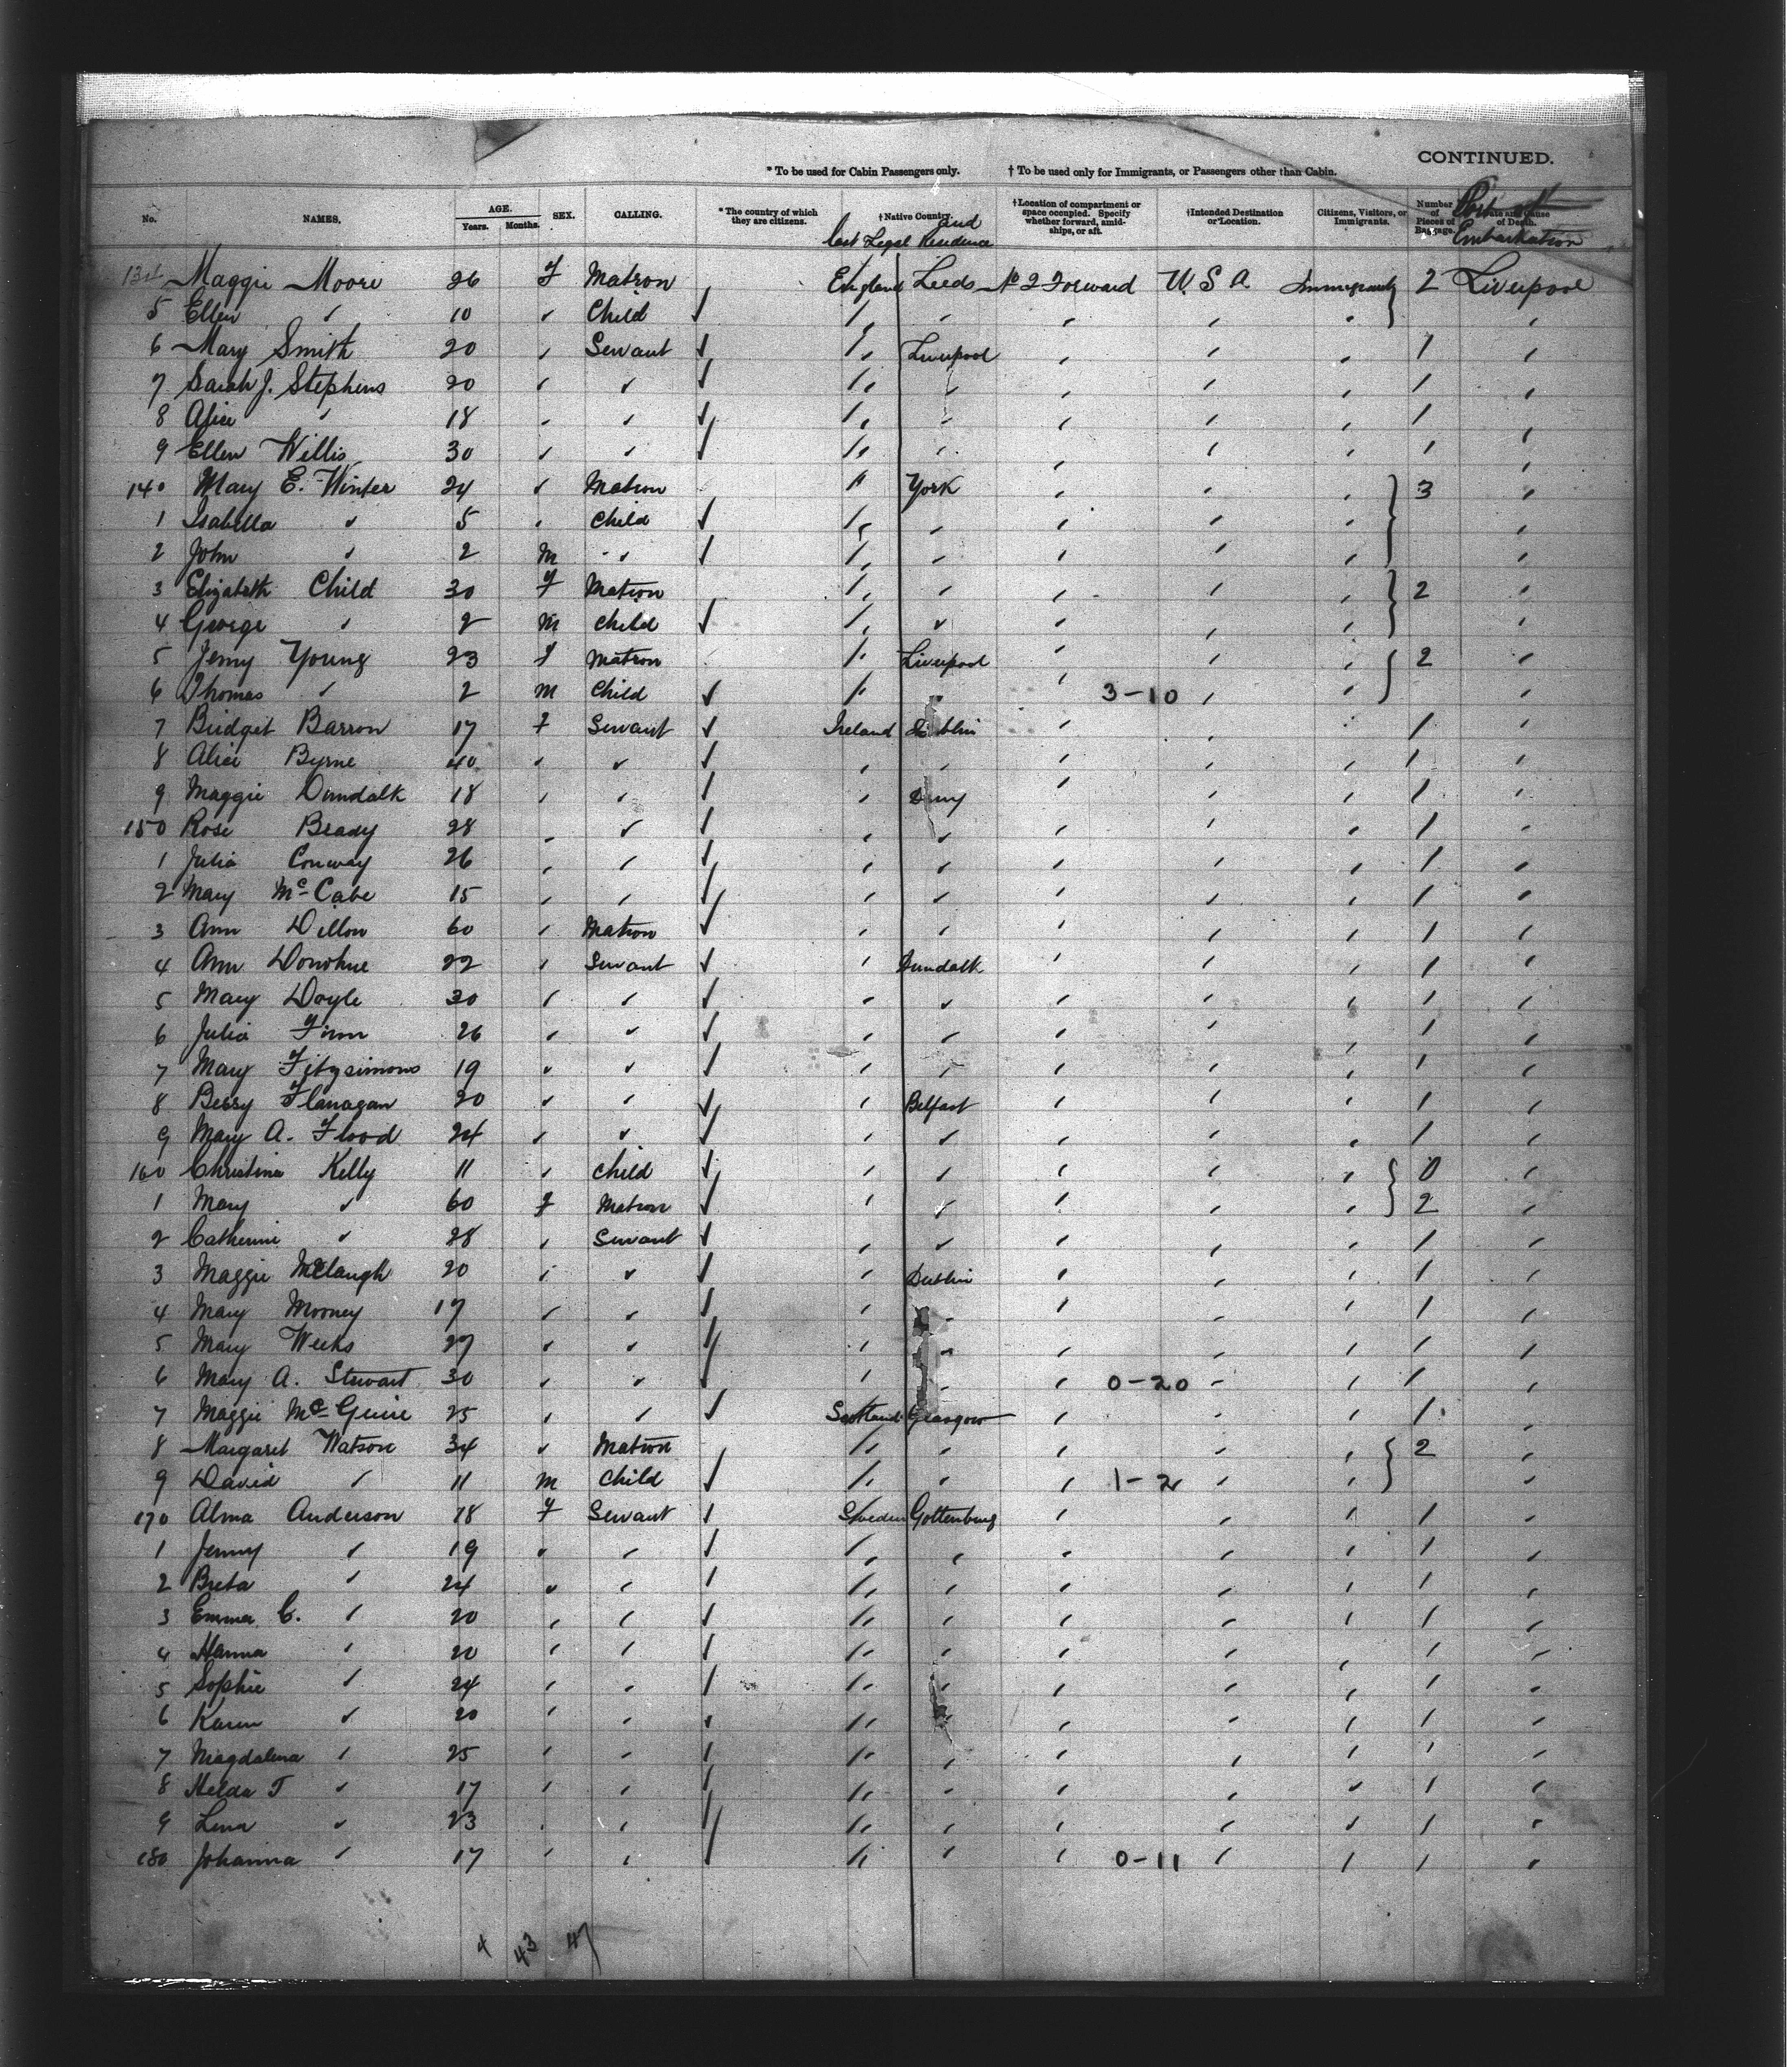 CONTINUED.
* To be used for Cabin Passengers only. † To be used only for Immigrants, or Passengers other than Cabin.
No. NAMES. AGE. Years. Months. SEX. CALLING. * The country of which they are citizens. † Native Country. and last Legal Residence † Location of compartment or space occupied. Specify whether forward, amidships, or aft. † Intended Destination or Location. Citizens, Visitors, or Immigrants. Number of Pieces of Baggage. Port of Embarkation
134 Maggie Moore 26 F Matron England Leeds No 2 Forward U.S.A Immigrants 2 Liverpool
5 Ellen " 10 " Child " " " " " "
6 Mary Smith 20 " Servant " Liverpool " " " 1 "
7 Sarah J. Stephens 20 " " " " " " " 1 "
8 Alice " 18 " " " " " " " 1 "
9 Ellen Willis 30 " " " " " " " 1 "
140 Mary E. Winter 24 " Matron " York " " " 3 "
1 Isabella " 5 " Child " " " " " "
2 John " 2 M " " " " " " "
3 Elizabeth Child 30 F Matron " " " " " 2 "
4 George " 2 M Child " " " " " "
5 Jenny Young 23 F Matron " Liverpool " " " 2 "
6 Thomas " 2 M Child " " " 3-10 " " "
7 Bridget Barron 17 F Servant Ireland Dublin " " " 1 "
8 Alice Byrne 40 " " " " " " " 1 "
9 Maggie Dundalk 18 " " " Derry " " " 1 "
150 Rose Brady 28 " " " " " " " 1 "
1 Julia Conway 26 " " " " " " " 1 "
2 Mary McCabe 15 " " " " " " " 1 "
3 Ann Dillon 60 " Matron " " " " " 1 "
4 Ann Donohue 22 " Servant " Dundalk " " " 1 "
5 Mary Doyle 30 " " " " " " " 1 "
6 Julia Finn 26 " " " " " " " 1 "
7 Mary Fitzsimons 19 " " " " " " " 1 "
8 Bessy Flanagan 20 " " " Belfast " " " 1 "
9 Mary A. Flood 24 " " " " " " " 1 "
160 Christina Kelly 11 " Child " " " " " 0 "
1 Mary " 60 F Matron " " " " " 2 "
2 Catherine " 28 " Servant " " " " " 1 "
3 Maggie 20 " " " Dublin " " " 1 "
4 Mary Mooney 17 " " " " " " " 1 "
5 Mary Weeks 27 " " " " " " " 1 "
6 Mary A. Stewart 30 " " " " " 0-20 " " 1 "
7 Maggie McGuire 25 " " Scotland Glasgow " " " 1 "
8 Margaret Watson 34 " Matron " " " " " 2 "
9 David " 11 M Child " " " 1-2 " " "
170 Alma Anderson 18 F Servant Sweden Gottenburg " " " 1 "
1 Jenny " 19 " " " " " " " 1 "
2 Breta " 24 " " " " " " " 1 "
3 Emma C. " 20 " " " " " " " 1 "
4 Hanna " 20 " " " " " " " 1 "
5 Sophie " 24 " " " " " " " 1 "
6 Karen " 20 " " " " " " " 1 "
7 Magdalena " 25 " " " " " " " 1 "
8 Helda T " 17 " " " " " " " 1 "
9 Lena " 23 " " " " " " " 1 "
180 Johanna " 17 " " " " " 0-11 " " 1 "
4 43 47